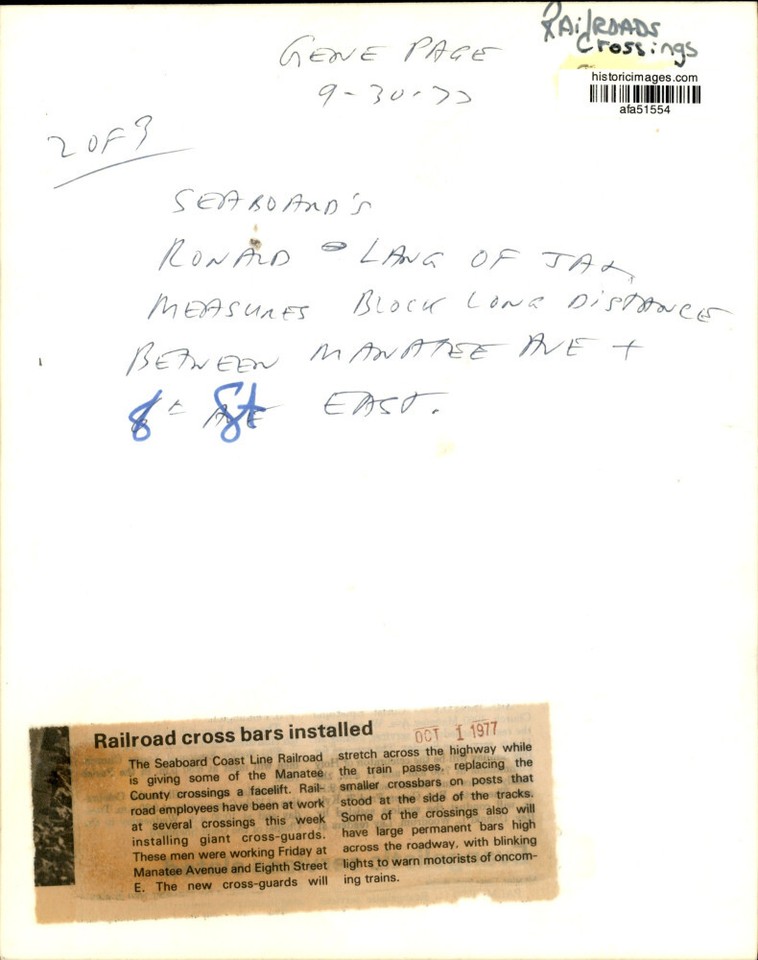 RAilROADS
Crossings
historicimages.com
afa51554
GENE PAGE
9-30-77
2 OF 3
SEABOARD'S
RONALD LANG OF JAX
MEASURES BLOCK LONG DISTANCE
BETWEEN MANATEE AVE +
8th St EAST.
Railroad cross bars installed
OCT 1 1977
The Seaboard Coast Line Railroad
is giving some of the Manatee
County crossings a facelift. Rail-
road employees have been at work
at several crossings this week
installing giant cross-guards.
These men were working Friday at
Manatee Avenue and Eighth Street
E. The new cross-guards will
stretch across the highway while
the train passes, replacing the
smaller crossbars on posts that
stood at the side of the tracks.
Some of the crossings also will
have large permanent bars high
across the roadway, with blinking
lights to warn motorists of oncom-
ing trains.